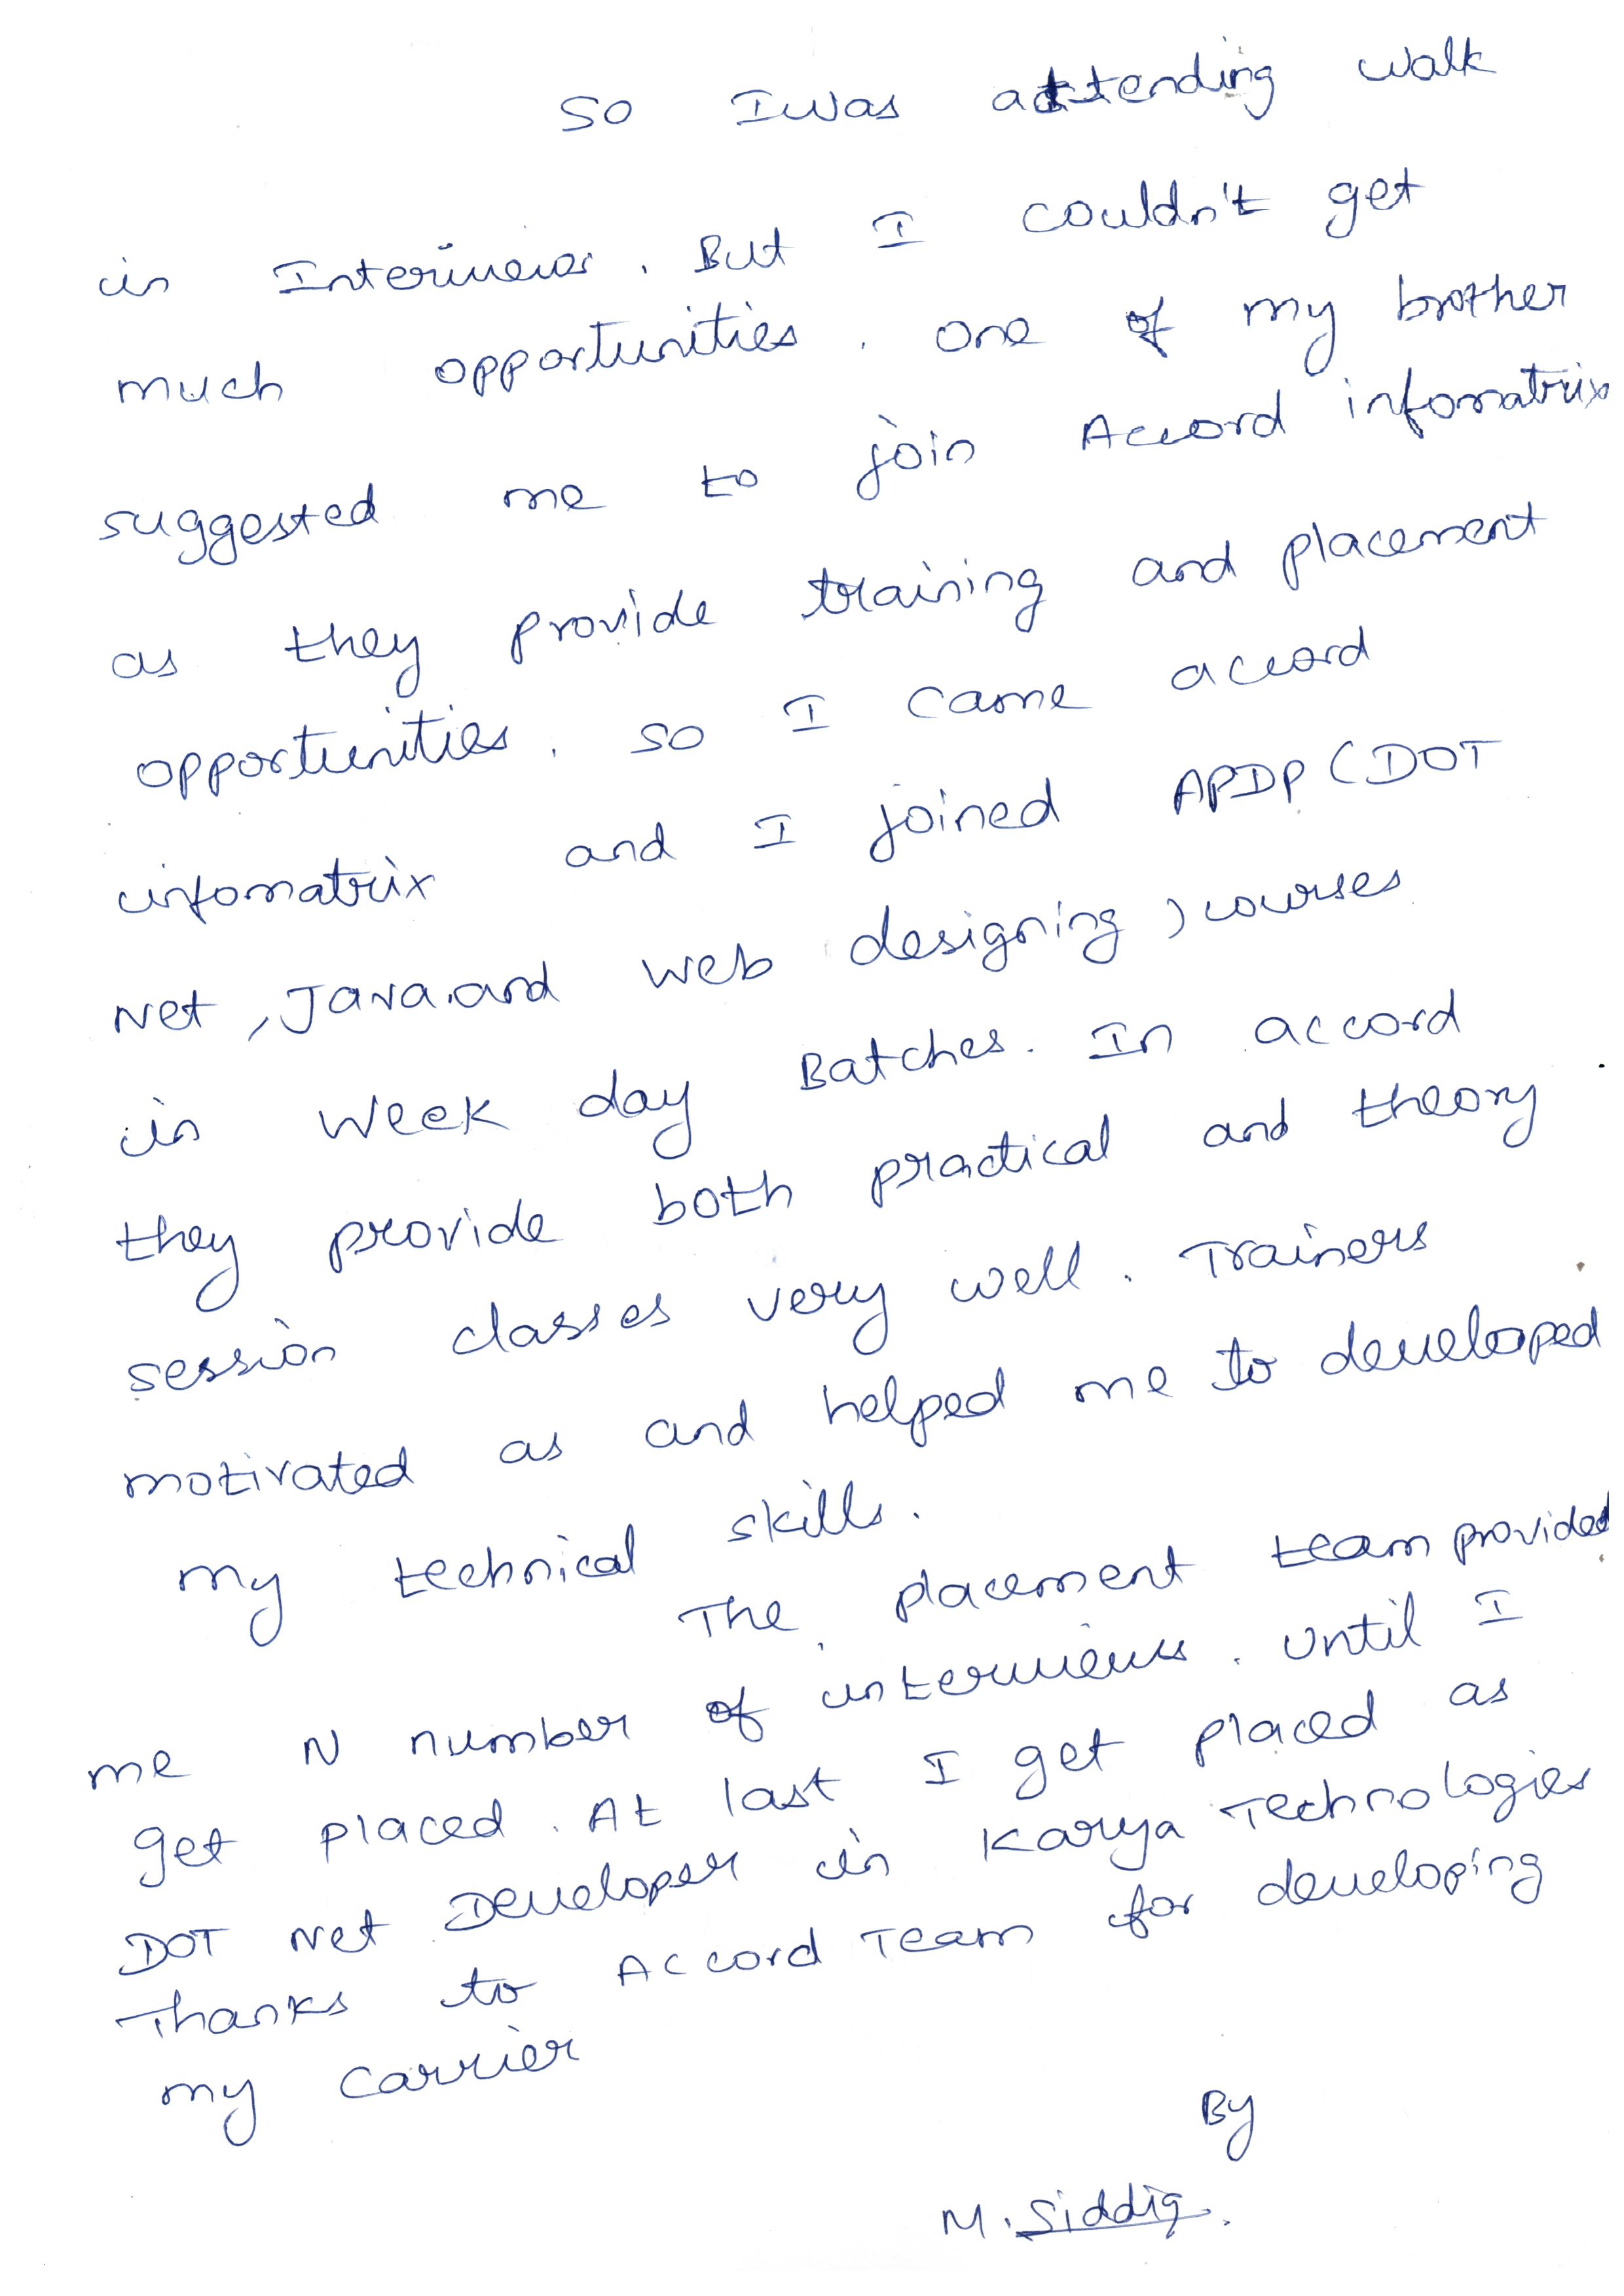 so I was attending walk
in Interviews. But I couldn't get
much opportunities. one of my brother
suggested me to join Accord infomatrix
as they provide training and placement
opportunities. so I came accord
infomatrix and I joined APDP (DOT
Net, Java and web designing) courses
in week day Batches. In accord
they provide both practical and theory
session classes very well. Trainers
motivated as and helped me to developed
my technical skills.
The placement team provided
me N number of interviews. until I
get placed. At last I get placed as
DOT Net Developer in Karya Technologies
Thanks to Accord Team for developing
my carrier
By
M. Siddiq.